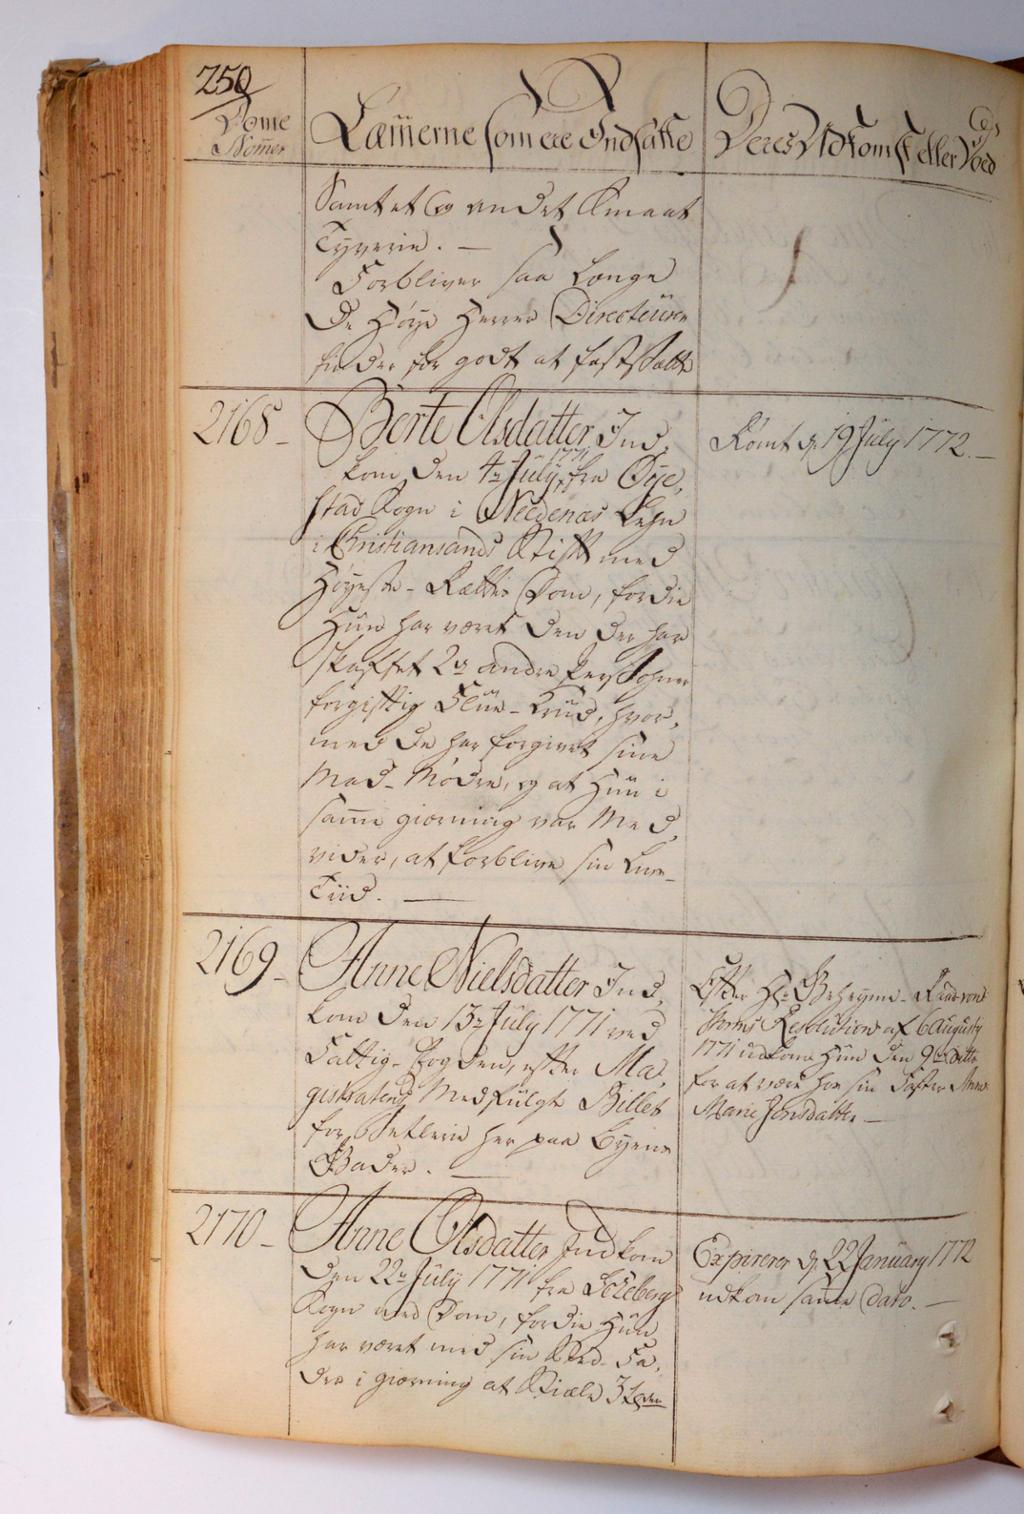 250
Dome Nom̄er
Læm̄erne som ere Indsatte
Deres Udkomst eller Død
Samt et og andet Smaat
Tyverie. —
Forbliver saa Længe
De Høye Herrer Directeürer
finder for godt at fastsætte
2168 –
Berte Olsdatter Ind,
kom den 4de July 1771 fra Øye,
stad Sogn i Nedenæs Lehn
i Christiansands Stift med
Høyeste-Rættes Dom, fordie
Hun har været den der har
skaffet 2de andre Persohner
forgiftig Flue-Krud, hvor,
med De har forgivet sine
Mad-Mødre, og at Hun i
sam̄e giærning var Med,
vider, at forblive sin Livs-
Tiid. —
Rømt d. 19 July 1772. —
2169 –
Anne Nielsdatter Ind,
kom den 13de July 1771 ved
Fattig-Fogden, efter Ma,
gistratens Medfulgte Billet
for Betlerie her paa Byens
Gader. —
Efter Hr. Geheyme-Raad von
Storms Resolution af 6 Augusty
1771 udkom Hun den 9de Ditto
for at være hos sin Søster Anne
Marie Jensdatter —
2170 –
Anne Olsdatter Indkom
den 22de July 1771 fra
Sogn med Dom, fordie Hun
har været med sin Sted-Fa,
der i giærning at Stiæle 3
Expirerer d. 22 January 1772
udkom sam̄e Dato. —